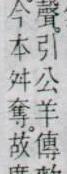 聲。引公羊傳
今本舛奪。故